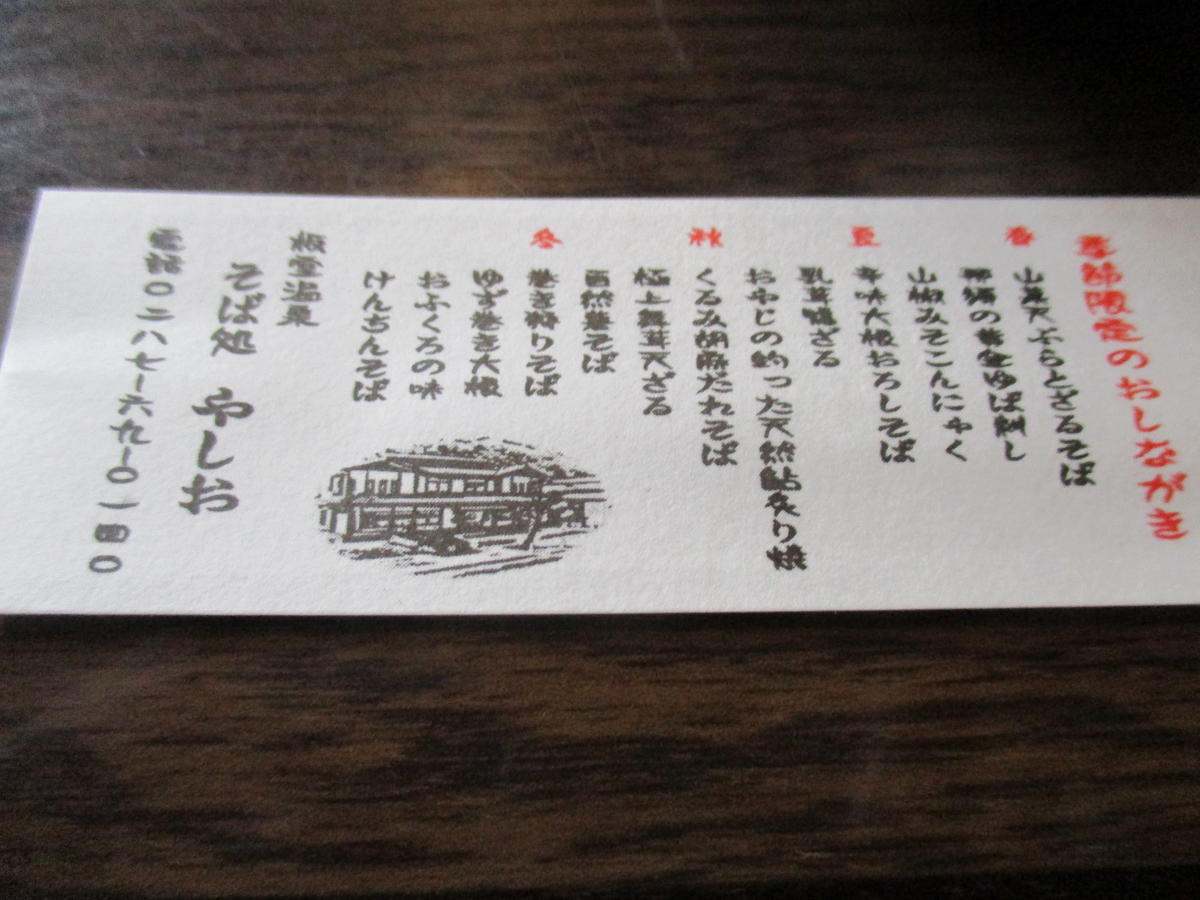 季節限定のおしながき
春 山菜天ぷらとざるそば
那須の黄金ゆば刺し
山椒みそこんにゃく
夏 辛味大根おろしそば
乳茸鴨ざる
おやじの釣った天然鮎炙り焼
秋 くるみ胡麻だれそば
極上舞茸天ざる
自然薯そば
冬 巻き狩りそば
ゆず巻き大根
おふくろの味
けんちんそば
板室温泉
そば処 やしお
電話〇二八七ー六九ー〇一四〇